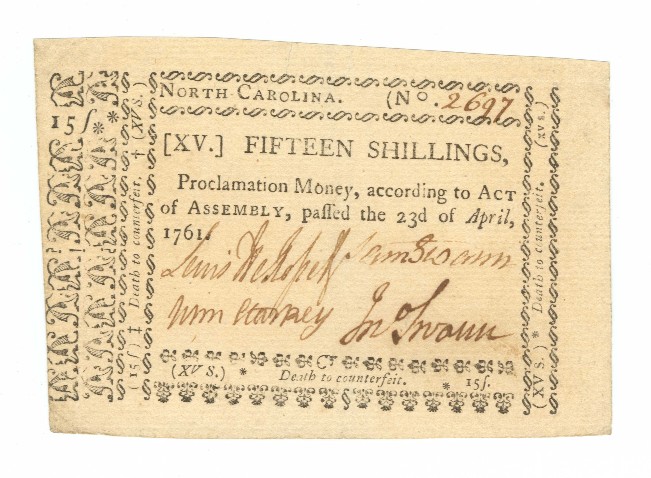 NORTH CAROLINA. (No. 2697
[XV.] FIFTEEN SHILLINGS,
Proclamation Money, according to ACT
of ASSEMBLY, paſſed the 23d of April,
1761.
Lewis DeRosset Sam Swann
Wm Jno Swann
(XV S.) * Death to counterfeit. * 15ſ.
15ſ * *
(15ſ) ‡ Death to counterfeit. † (XV S.)
(XV S.) * Death to counterfeit. (XV S.)